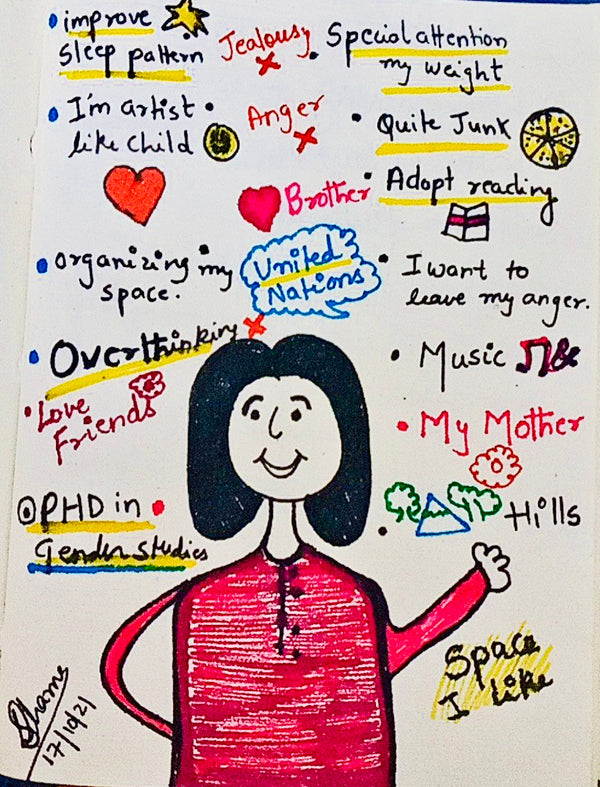 improve
Sleep pattern
Jealousy
Special attention
my weight
I'm artist
like child
Anger
Quite Junk
Brother
Adopt reading
organizing my
space.
United
Nations
I want to
leave my anger.
Overthinking
Music
Love
Friends
My Mother
PHD in
Gender studies
Hills
Space
I like
Shams
17/10/21